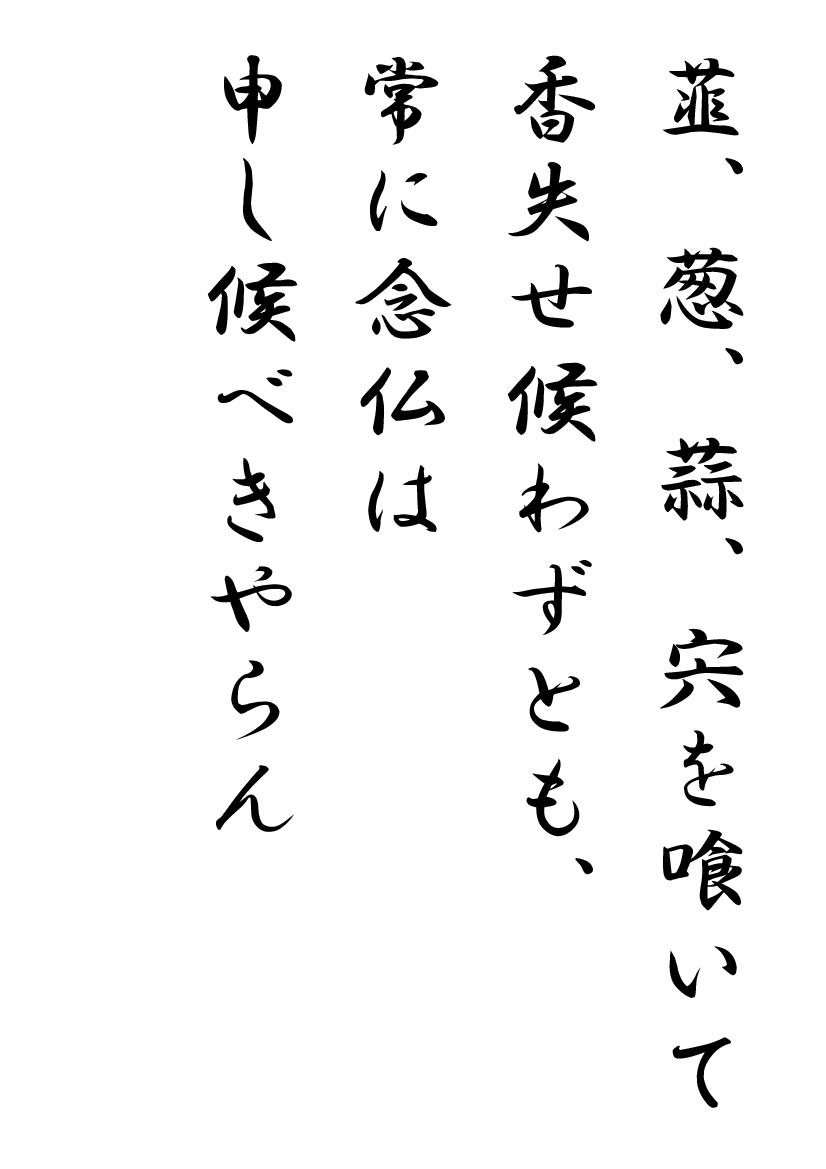 韮、葱、蒜、宍を喰いて
香失せ候わずとも、
常に念仏は
申し候べきやらん